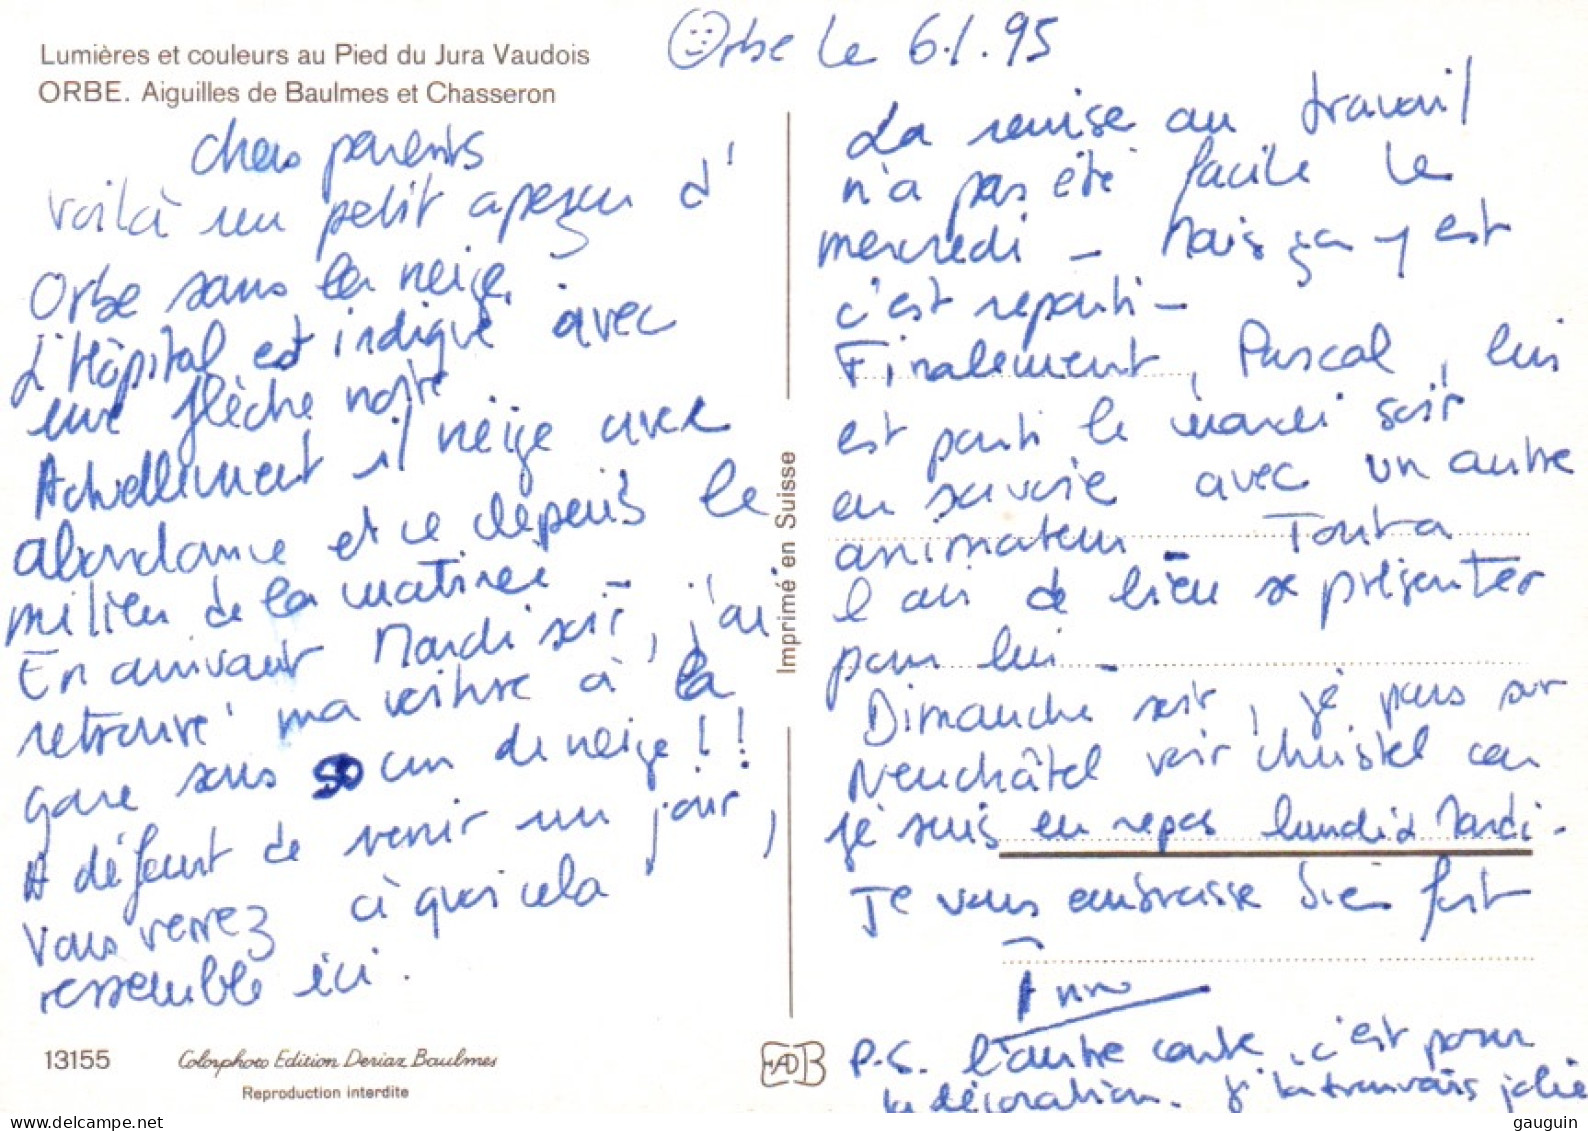 Lumières et couleurs au Pied du Jura Vaudois
ORBE. Aiguilles de Baulmes et Chasseron
Chers parents
Voilà un petit aperçu d'
Orbe sans la neige.
L'Hôpital est indiqué avec
une flèche noire
Actuellement il neige avec
abondance et ce depuis le
milieu de la matinée –
En arrivant Mardi soir, j'ai
retrouvé ma voiture à la
gare sous 50 cm de neige!!
A défaut de venir un jour,
Vous verrez à quoi cela
ressemble ici.
13155
Colorphoto Edition Deriaz Baulmes
Reproduction interdite
Imprimé en Suisse
Orbe le 6.1.95
La remise au travail
n'a pas été facile le
mercredi – Mais ça y est
c'est reparti –
Finalement, Pascal, lui
est parti le mardi soir
en savoie avec un autre
animateur – Tout a
l'air de bien se présenter
pour lui –
Dimanche soir, je pars sur
Neuchâtel voir Christel car
je suis en repos lundi & Mardi.
Je vous embrasse bien fort
Anne
P.S. l'autre carte, c'est pour
la décoration. J' la trouvais jolie
delcampe.net
gauguin